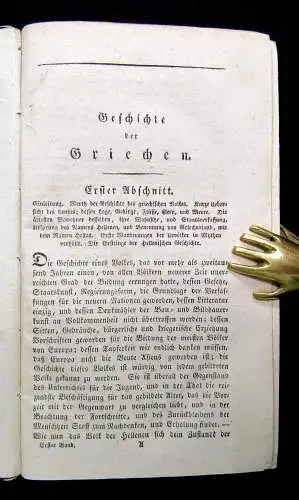 Geschichte
der
Griechen.
Erster Abschnitt.
Einleitung. Werth der Geschichte des griechischen Volkes. Kurze Ueber-
sicht des Landes; dessen Lage, Gebirge, Flüsse, Seen, und Meere. Die
ältesten Bewohner desselben, ihre Wohnsitze, und Staatsverfassung.
Ursprung des Namens Hellenen, und Benennung von Griechenland, mit
dem Namen Hellas. Erste Wanderungen der Urvölker in Mythen
verhüllt. Die Erstlinge der Hellenischen Geschichte.
Die Geschichte eines Volkes, das vor mehr als zweitausend
send Jahren einen, von allen Völkern neuerer Zeit uner-
reichten Grad der Bildung errungen hatte, dessen Gesetze,
Staatskunst, Regierungsform, die Grundlage der Verfas-
sungen für die neuen Nationen geworden, dessen Litteratur
einzig, und dessen Denkmähler der Bau- und Bildhauer-
kunst an Vollkommenheit nicht übertroffen werden; dessen
Sitten, Gebräuche, bürgerliche und kriegerische Erziehung
Vorschriften geworden für die Bildung der meisten Völker
von Europa; dessen Tapferkeit wir endlich danken müssen,
daß Europa nicht die Beute Asiens geworden ist; die
Geschichte dieses Volkes ist würdig von jedem gebildeten
Leute gekannt zu werden. Sie ist überall der Gegenstand
des Unterrichtes für die Jugend, und in der That die reizendste
Beschäftigung für das gebildete Alter, das die Vor-
zeit mit der Gegenwart zu vergleichen liebt, und in der
Beachtung der Fortschritte, und des Zurückbleibens der
Menschheit Stoff zum Nachdenken, und Erholung findet. —
Wie nun das Volk der Hellenen sich dem Zustande der
Erster Band. A